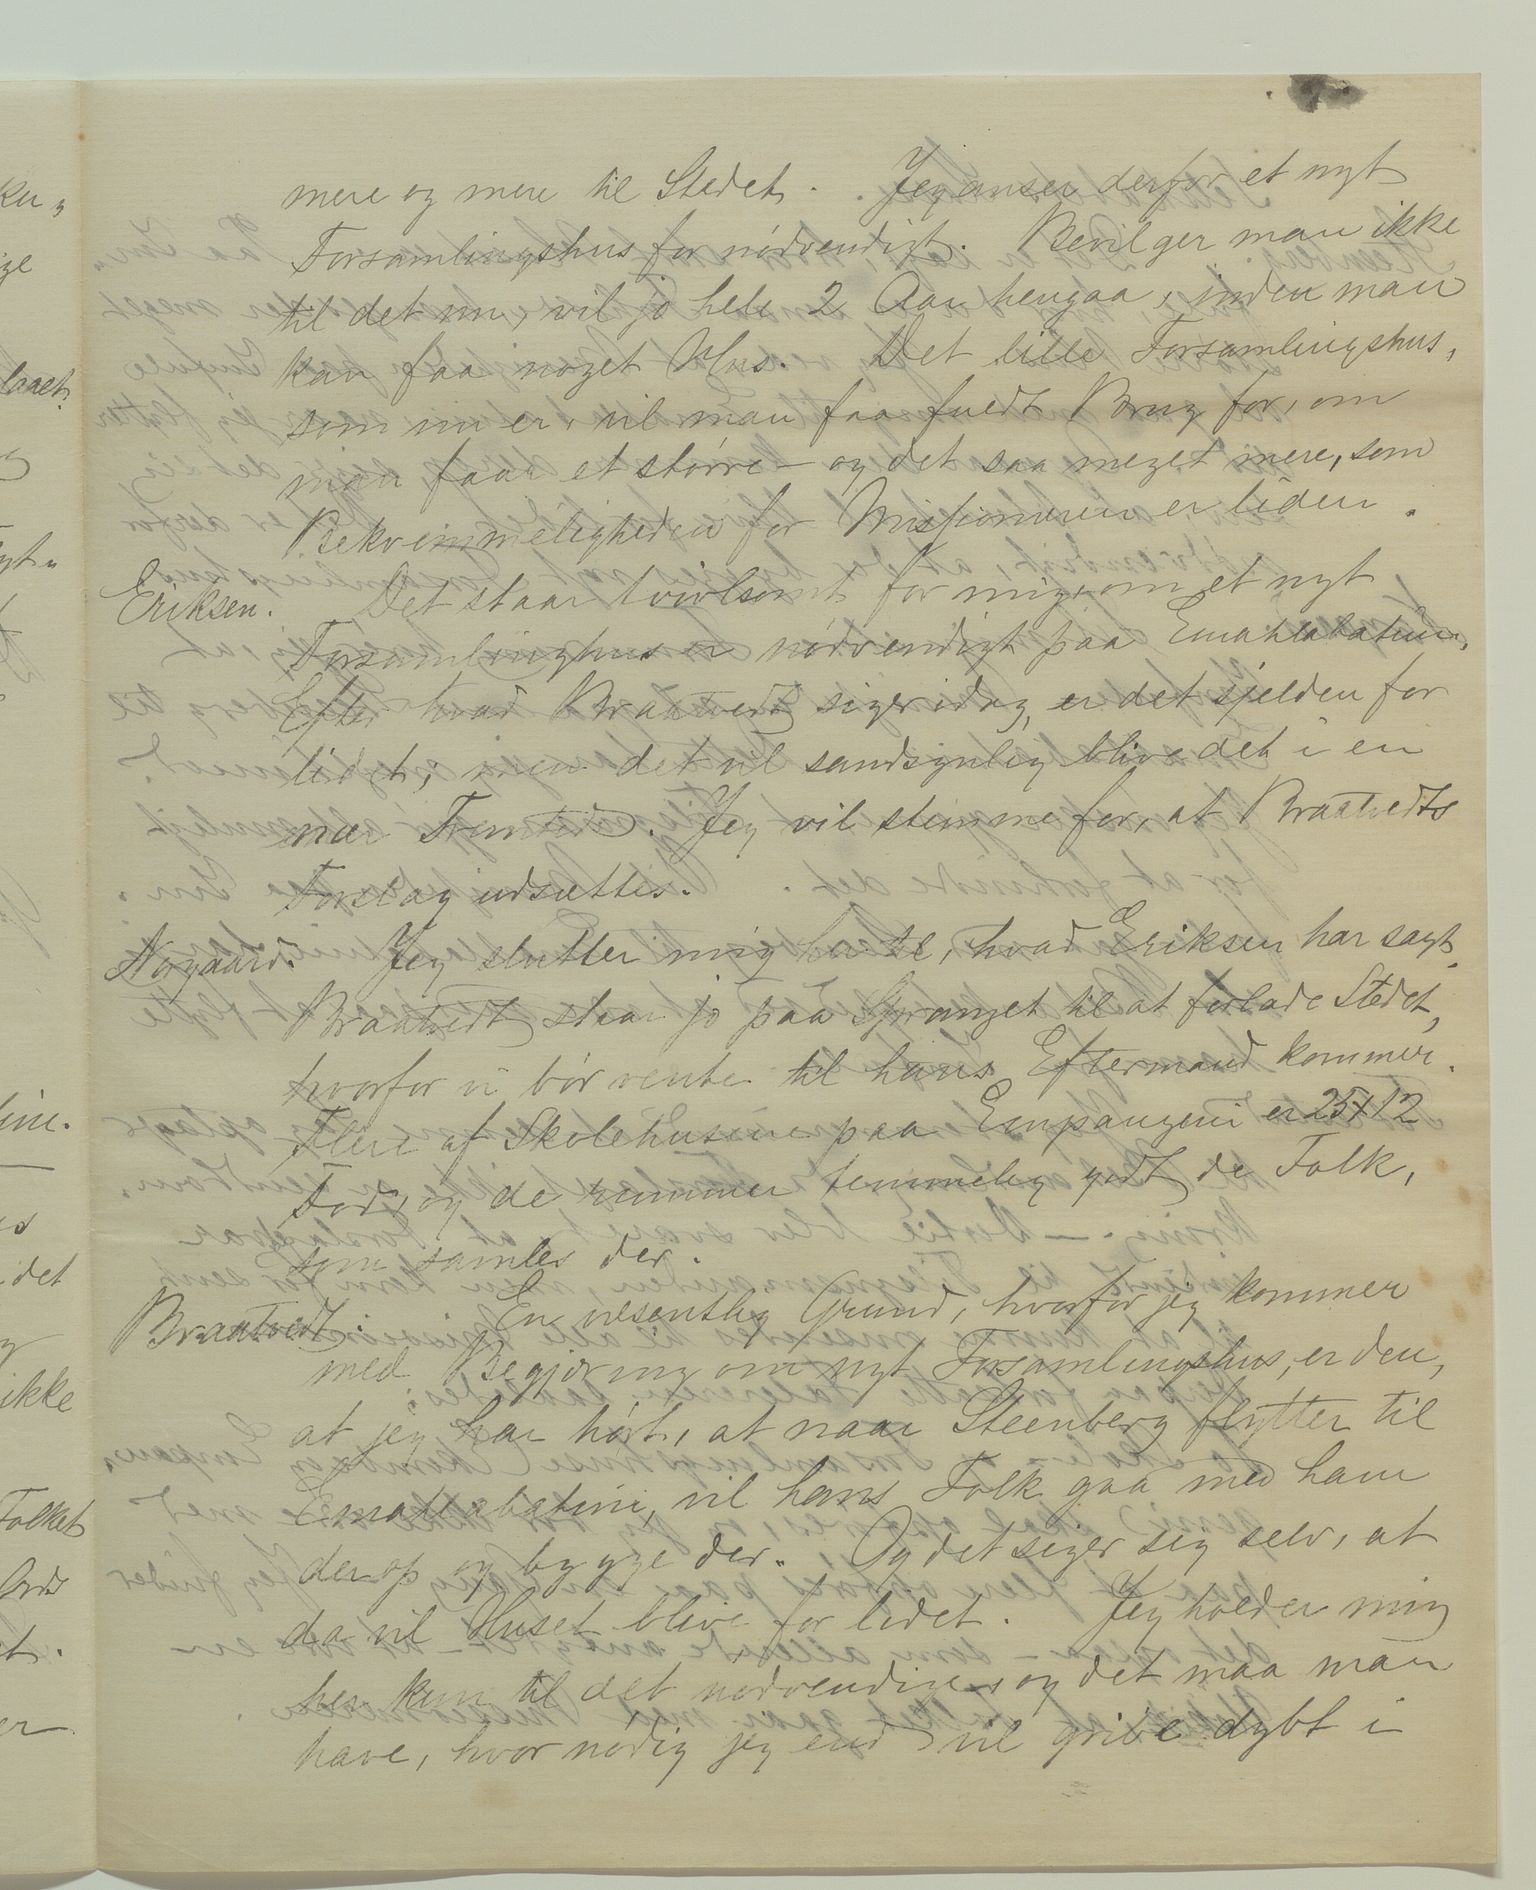 mere og mere til Stedet. Jeg anser derfor et nyt
Forsamlingshus for nødvendigt. Bevilger man ikke
til det nu, vil jo hele 2 Aar hengaa, inden man
kan faa noget Hus. Det lille Forsamlingshus,
som nu er, vil man faa fuldt Brug for, om
man faar et større – og det saa meget mere, som
Bekvemmeligheden for Missionæren er liden.
Eriksen. Det staar tvivlsomt for mig, om et nyt
Forsamlinghus er nødvendigt paa Emahlabatini.
Efter hvad Braatvedt siger idag, er det sjelden for
lidet; men det vil sandsynlig blive det i en
nær Fremtid. Jeg vil stemme for, at Braatvedts
Forslag udsættes.
Norgaard. Jeg slutter mig hertil, hvad Eriksen har sagt.
Braatvedt staar jo paa Spranget til at forlade Stedet,
hvorfor vi bør vente til hans Eftermand kommer.
Flere af Skolehusene paa Empangeni er 25 x 12
Fod, og de rummer temmelig godt de Folk,
som samles der.
Braatvedt. En væsentlig Grund, hvorfor jeg kommer
med Begjæring om nyt Forsamlingshus, er den,
at jeg har hørt, at naar Steenberg flytter til
Ematlabatini, vil hans Folk gaa med ham
derop og bygge der. Og det siger sig selv, at
da vil Huset blive for lidet. Jeg holder mig
her kun til det nødvendige, og det maa man
have, hvor nødig jeg end vil gribe dybt i